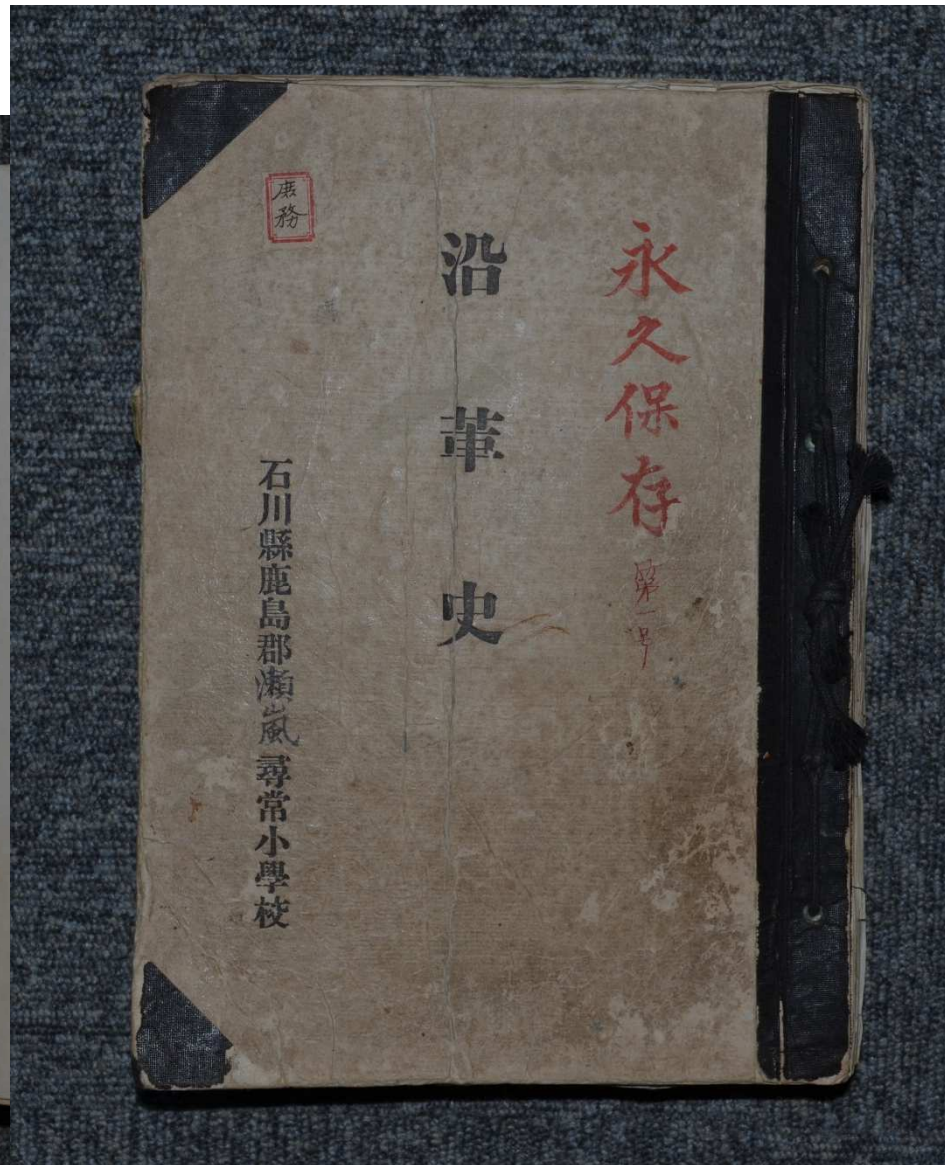 永久保存 第一号
沿革史
庶務
石川縣鹿島郡瀬嵐尋常小學校